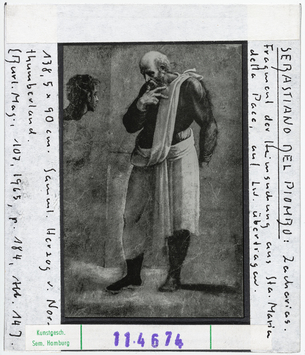 SEBASTIANO DEL PIOMBO: Zacharias.
Fragment der Heimsuchung aus Sta. Maria
della Pace, auf Lw. übertragen.
138,5 x 90 cm. Samml. Herzog v. Nor
thumberland.
(Burl. Mag., 107, 1965, p. 184, Abb. 14).
Kunstgesch.
Sem. Hamburg
11.4674